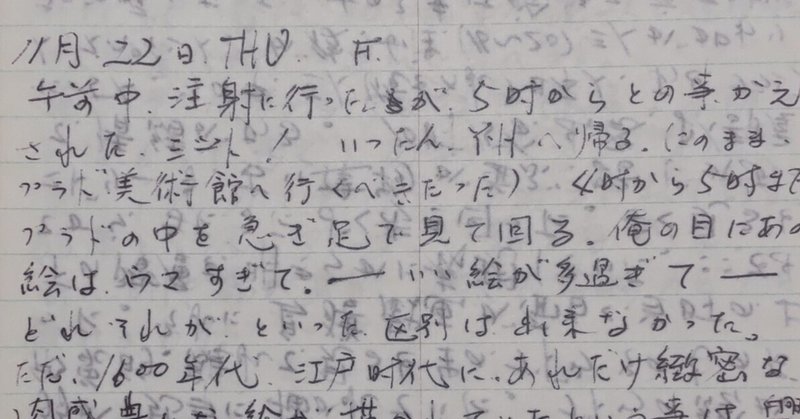 11月22日 THU. F.
午前中、注射に行ったが、5時からとの事、かえ
された。ミント! いったん、YHへ帰る。(このまま、
プラド美術館へ行くべきだった) 4時から5時まで
プラドの中を急ぎ足で見て回る。俺の目にあの
絵は、ウマすぎて。— いい絵が多過ぎて —
どれそれが、といった区別は出来なかった。
ただ、1600年代、江戸時代に、あれだけ緻密な
肉感 絵が描かれていたという事は